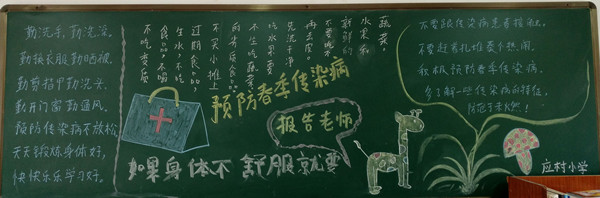 勤洗手,勤洗澡。
勤换衣服勤晒被,
勤剪指甲勤洗头,
勤开门窗勤通风。
预防传染病不放松,
天天锻炼身体好,
快快乐乐学习好。
蔬菜。
水果和
新鲜的
要吃
再去皮
先洗干净
吃水果要
不生吃蔬菜
的劣质食品
不买小摊上
过期食品
生水,不吃
食品不喝
不吃变质
预防春季传染病
如果身体不舒服就要
报告老师
不要跟传染病患者接触。
不要赶着扎堆凑个热闹。
积极预防春季传染病,
多了解一些传染病的特征,
防范于未然!
应村小学